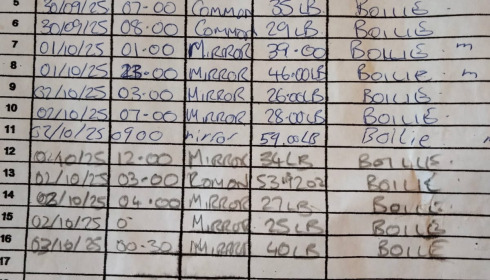 5 30/09/25 07-00 COMMON 35LB BOILIE
6 30/09/25 08.00 COMMON 29LB BOILIE
7 01/10/25 01-00 MIRROR 39-00 BOILIE. m
8 01/10/25 23-00 MIRROR 46.00LB BOILIE. m
9 02/10/25 03-00 MIRROR 26.00LB BOILIE.
10 02/10/25 07-00 MIRROR 28.00LB BOILIE.
11 02/10/25 0900 mirror 59.00LB Boilie
12 02/10/25 12-00 MIRROR 34LB BOILIE.
13 02/10/25 03-00 53
14 02/10/25 04.00 MIRROR 27LB BOILIE
15 02/10/25 0 MIRROR 25LB BOILIE
16 02/10/25 00-30 MIRROR 40LB BOILIE
17